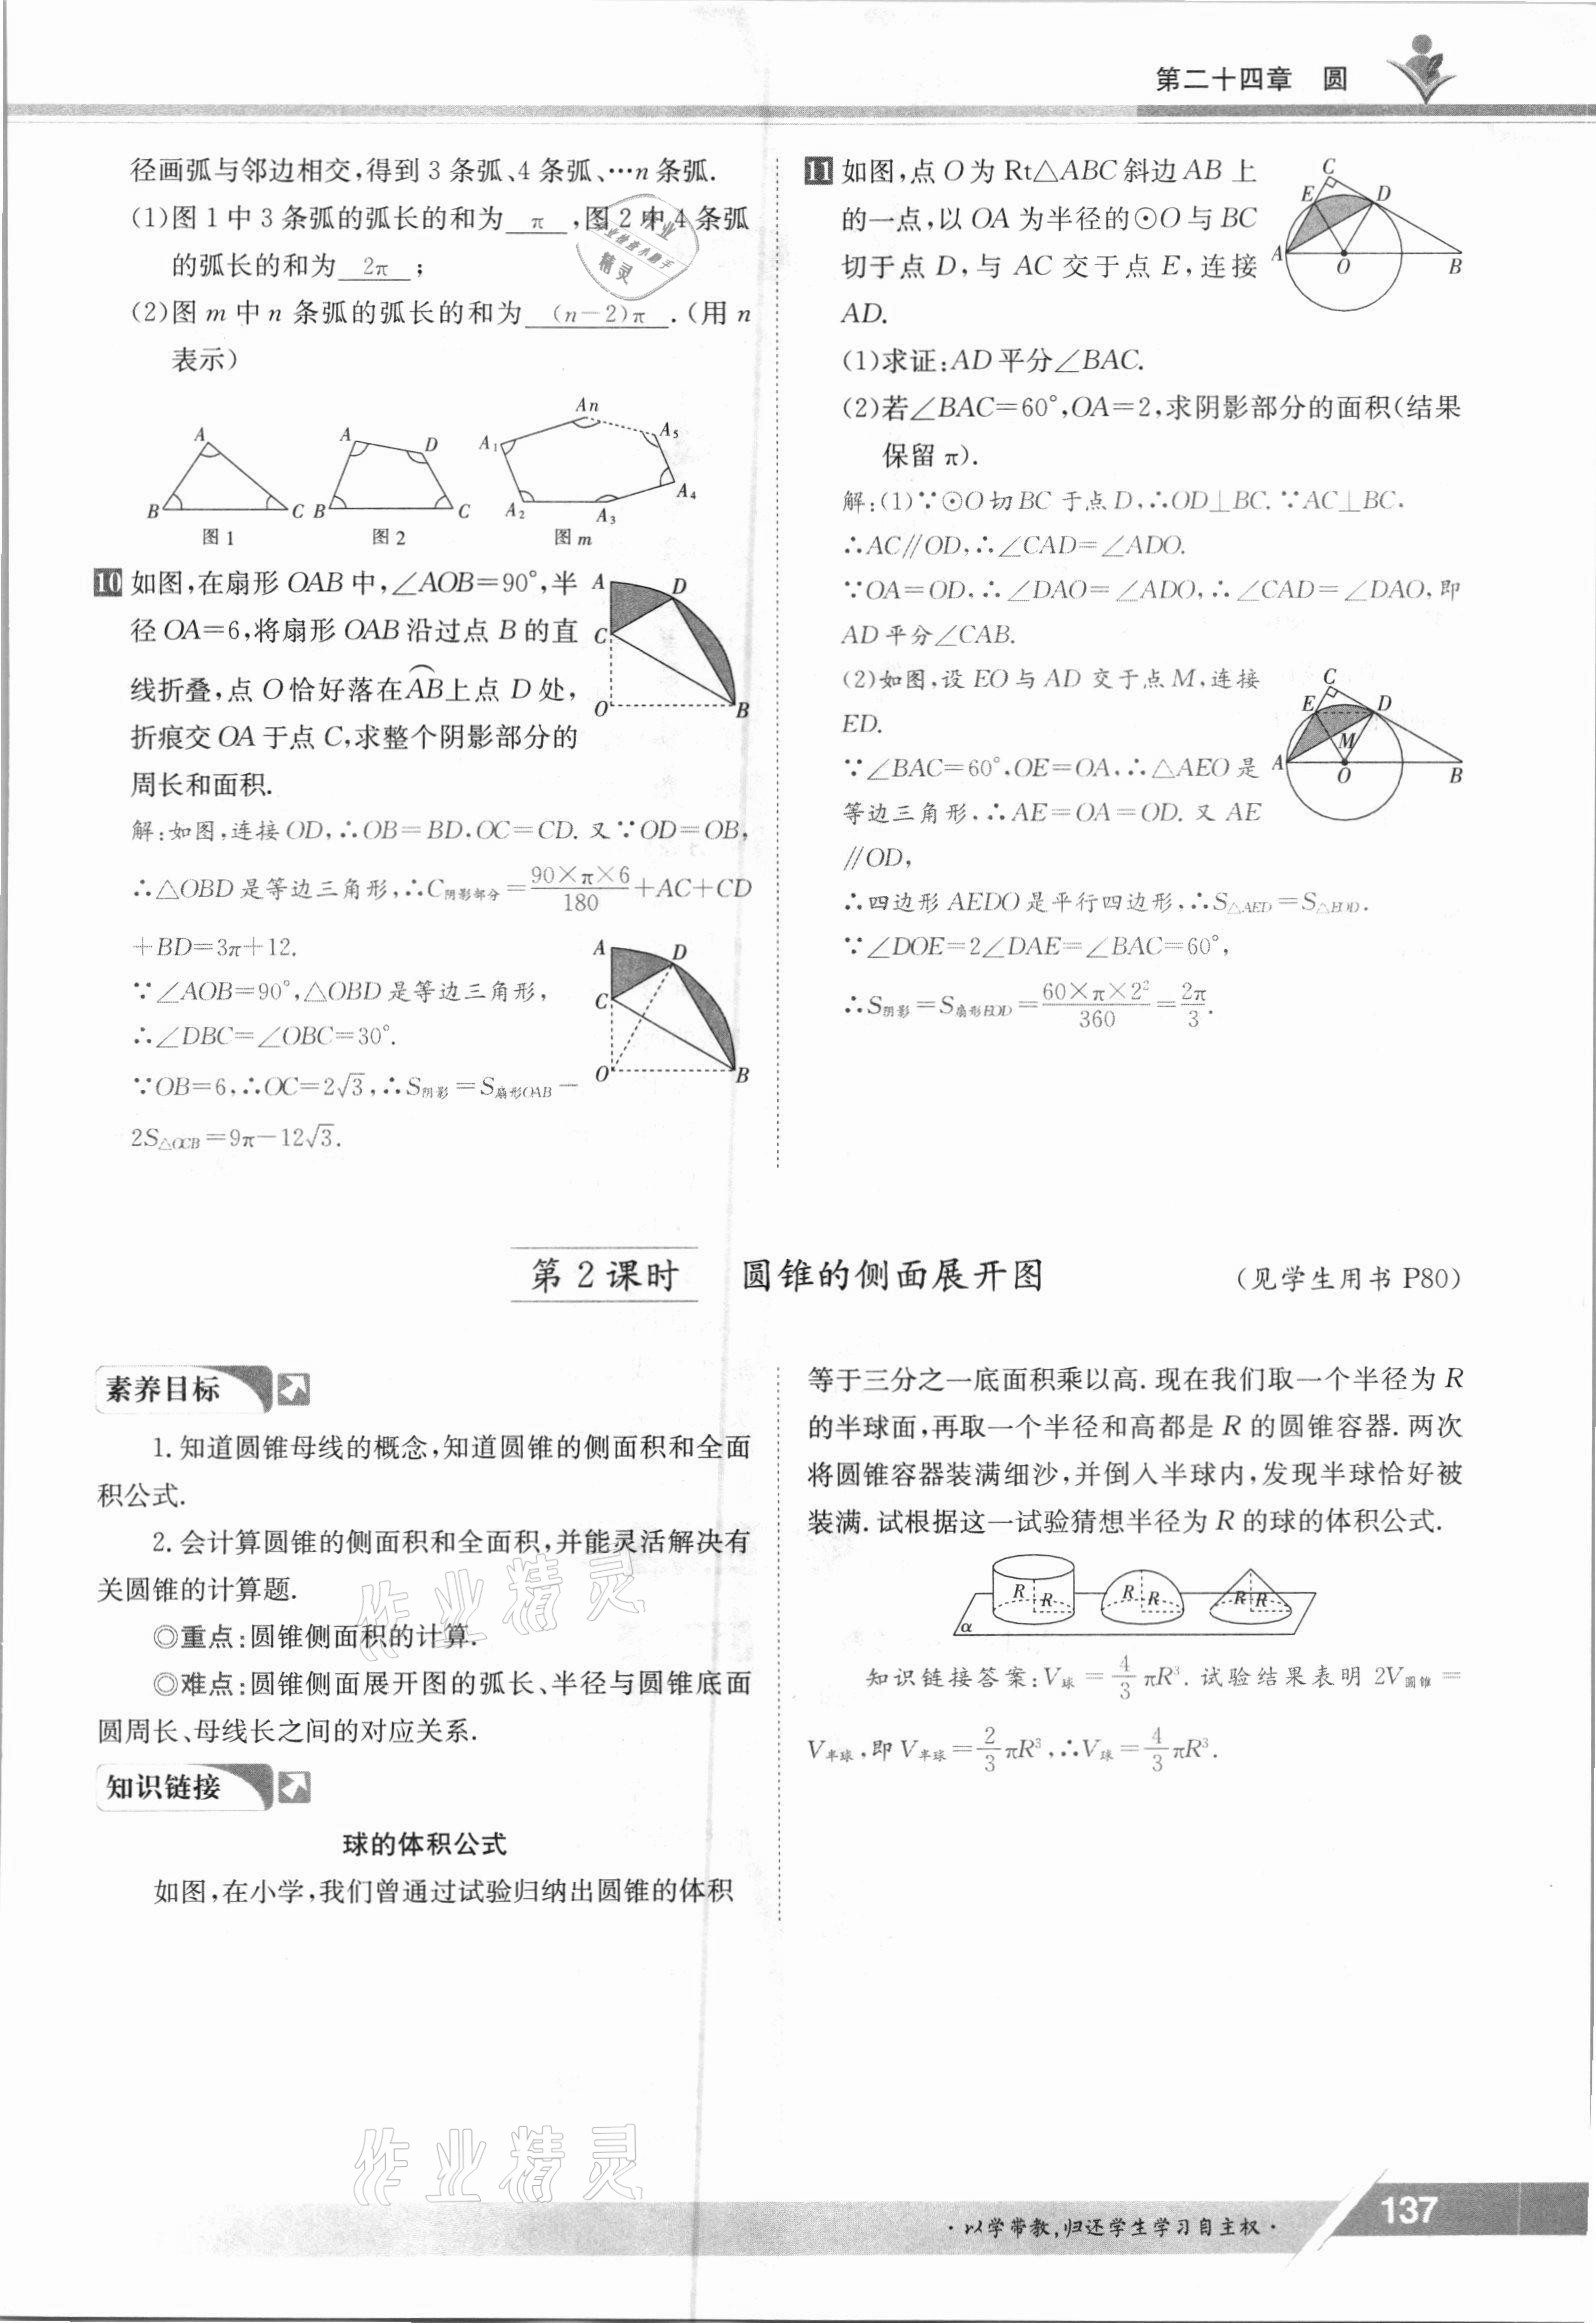 第二十四章 圆
径画弧与邻边相交,得到 3 条弧、4 条弧、…n 条弧.
(1)图 1 中 3 条弧的弧长的和为 π ,图 2 中 4 条弧
的弧长的和为 2π ;
(2)图 m 中 n 条弧的弧长的和为 (n-2)π .(用 n
表示)
A B C 图 1
A D B C 图 2
An A₁ A₅ A₂ A₃ A₄ 图 m
10 如图,在扇形 OAB 中,∠AOB=90°,半
径 OA=6,将扇形 OAB 沿过点 B 的直
线折叠,点 O 恰好落在⌒AB上点 D 处,
折痕交 OA 于点 C,求整个阴影部分的
周长和面积.
A D C O B
解:如图,连接 OD,∴OB=BD,OC=CD. 又∵OD=OB,
∴△OBD 是等边三角形,∴C阴影部分=90×π×6/180+AC+CD
+BD=3π+12.
∵∠AOB=90°,△OBD 是等边三角形,
∴∠DBC=∠OBC=30°.
∵OB=6,∴OC=2√3,∴S阴影=S扇形OAB-
2S△OCB=9π-12√3.
A D C O B
11 如图,点 O 为 Rt△ABC 斜边 AB 上
的一点,以 OA 为半径的⊙O 与 BC
切于点 D,与 AC 交于点 E,连接
AD.
C E D A O B
(1)求证:AD 平分∠BAC.
(2)若∠BAC=60°,OA=2,求阴影部分的面积(结果
保留 π).
解:(1)∵⊙O 切 BC 于点 D,∴OD⊥BC.∵AC⊥BC.
∴AC∥OD,∴∠CAD=∠ADO.
∵OA=OD,∴∠DAO=∠ADO,∴∠CAD=∠DAO,即
AD 平分∠CAB.
(2)如图,设 EO 与 AD 交于点 M,连接
ED.
∵∠BAC=60°,OE=OA,∴△AEO 是
等边三角形,∴AE=OA=OD. 又 AE
∥OD,
C E D M A O B
∴四边形 AEDO 是平行四边形,∴S△AED=S△EOD.
∵∠DOE=2∠DAE=∠BAC=60°,
∴S阴影=S扇形EOD=60×π×2²/360=2π/3.
第 2 课时 圆锥的侧面展开图 (见学生用书 P80)
素养目标
1. 知道圆锥母线的概念,知道圆锥的侧面积和全面
积公式.
2. 会计算圆锥的侧面积和全面积,并能灵活解决有
关圆锥的计算题.
◎重点:圆锥侧面积的计算.
◎难点:圆锥侧面展开图的弧长、半径与圆锥底面
圆周长、母线长之间的对应关系.
知识链接
球的体积公式
如图,在小学,我们曾通过试验归纳出圆锥的体积
等于三分之一底面积乘以高. 现在我们取一个半径为 R
的半球面,再取一个半径和高都是 R 的圆锥容器. 两次
将圆锥容器装满细沙,并倒入半球内,发现半球恰好被
装满. 试根据这一试验猜想半径为 R 的球的体积公式.
R R R R R R α
知识链接答案:V球=4/3πR³. 试验结果表明 2V圆锥=
V半球,即 V半球=2/3πR³,∴V球=4/3πR³.
作业精灵
作业精灵
·以学带教,归还学生学习自主权·
137